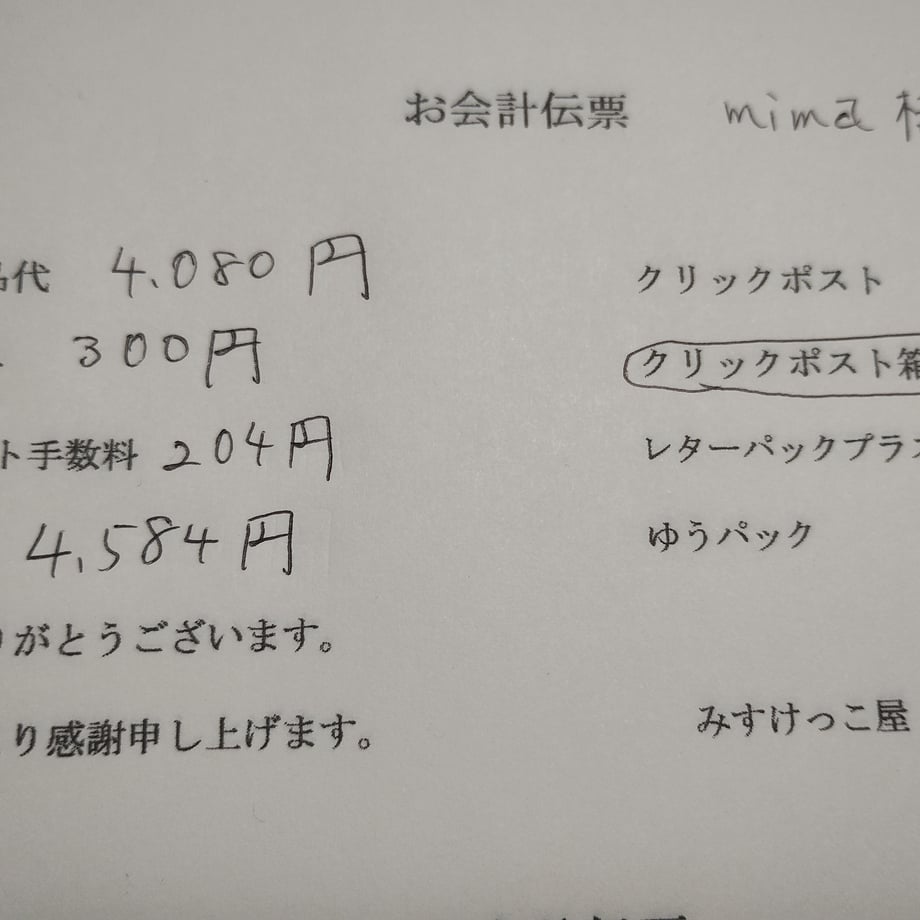 お会計伝票 mima
代 4,080円
クリックポスト
300円
クリックポスト箱
ト手数料 204円
レターパックプラス
4,584円
ゆうパック
がとうございます。
り感謝申し上げます。
みすけっこ屋